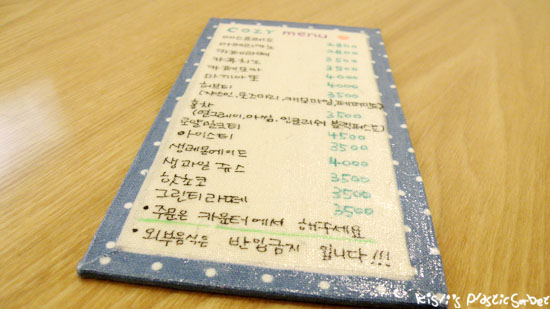 COZY menu
에스프레소 2800
아메리카노 2800
카페라떼 3500
카푸치노 3500
카페모카 4000
마끼아또 4000
허브티 3500
(쟈스민, 로즈마리, 캐모마일, 페퍼민트)
홍차 3500
(얼그레이, 아쌈, 잉글리쉬 블랙퍼스트)
로얄밀크티 4500
아이스티 3500
생레몬에이드 4000
생과일 쥬스 3500
핫초코 3500
그린티라떼 3500
• 주문은 카운터에서 해주세요
• 외부음식은 반입금지 입니다!!!